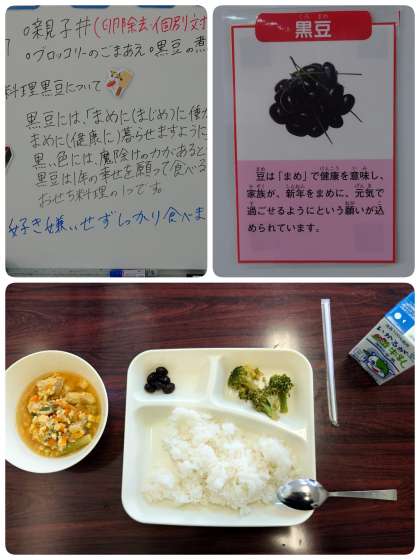 親子丼(卵除去.個別対
ブロッコリーのごまあえ 黒豆の煮
料理黒豆について
黒豆には、「まめに(まじめ)に働か
まめに(健康に)暮らせますように
黒い色には、魔除けの力があると
黒豆は1年の幸せを願って食べる
おせち料理の1つです。
好き嫌いせずしっかり食べま
くろ まめ
黒豆
まめ けんこう いみ
豆は「まめ」で健康を意味し、
かぞく しんねん げんき
家族が、新年をまめに、元気で
す ねが こ
過ごせるようにという願いが込
められています。